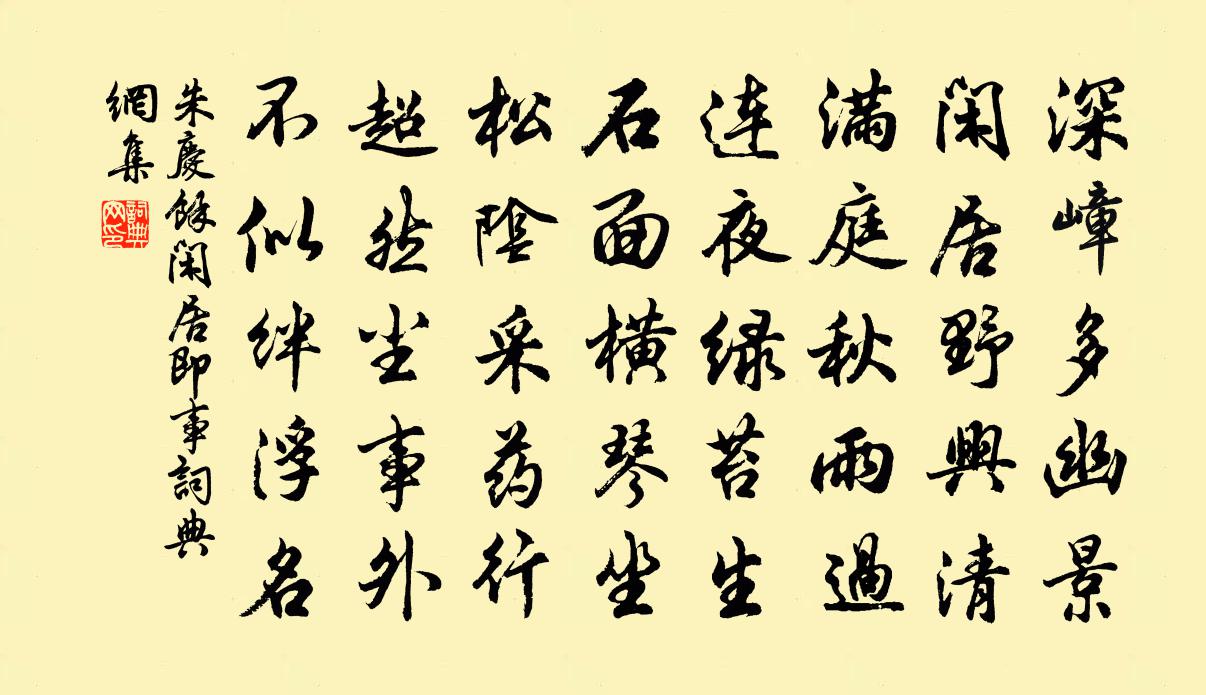 深嶂多幽景
閑居野興清
滿庭秋雨過
連夜绿苔生
石面橫琴坐
松陰采药行
超然尘事外
不似绊浮名
朱慶餘閑居即事詞典
網集
詞典
网印